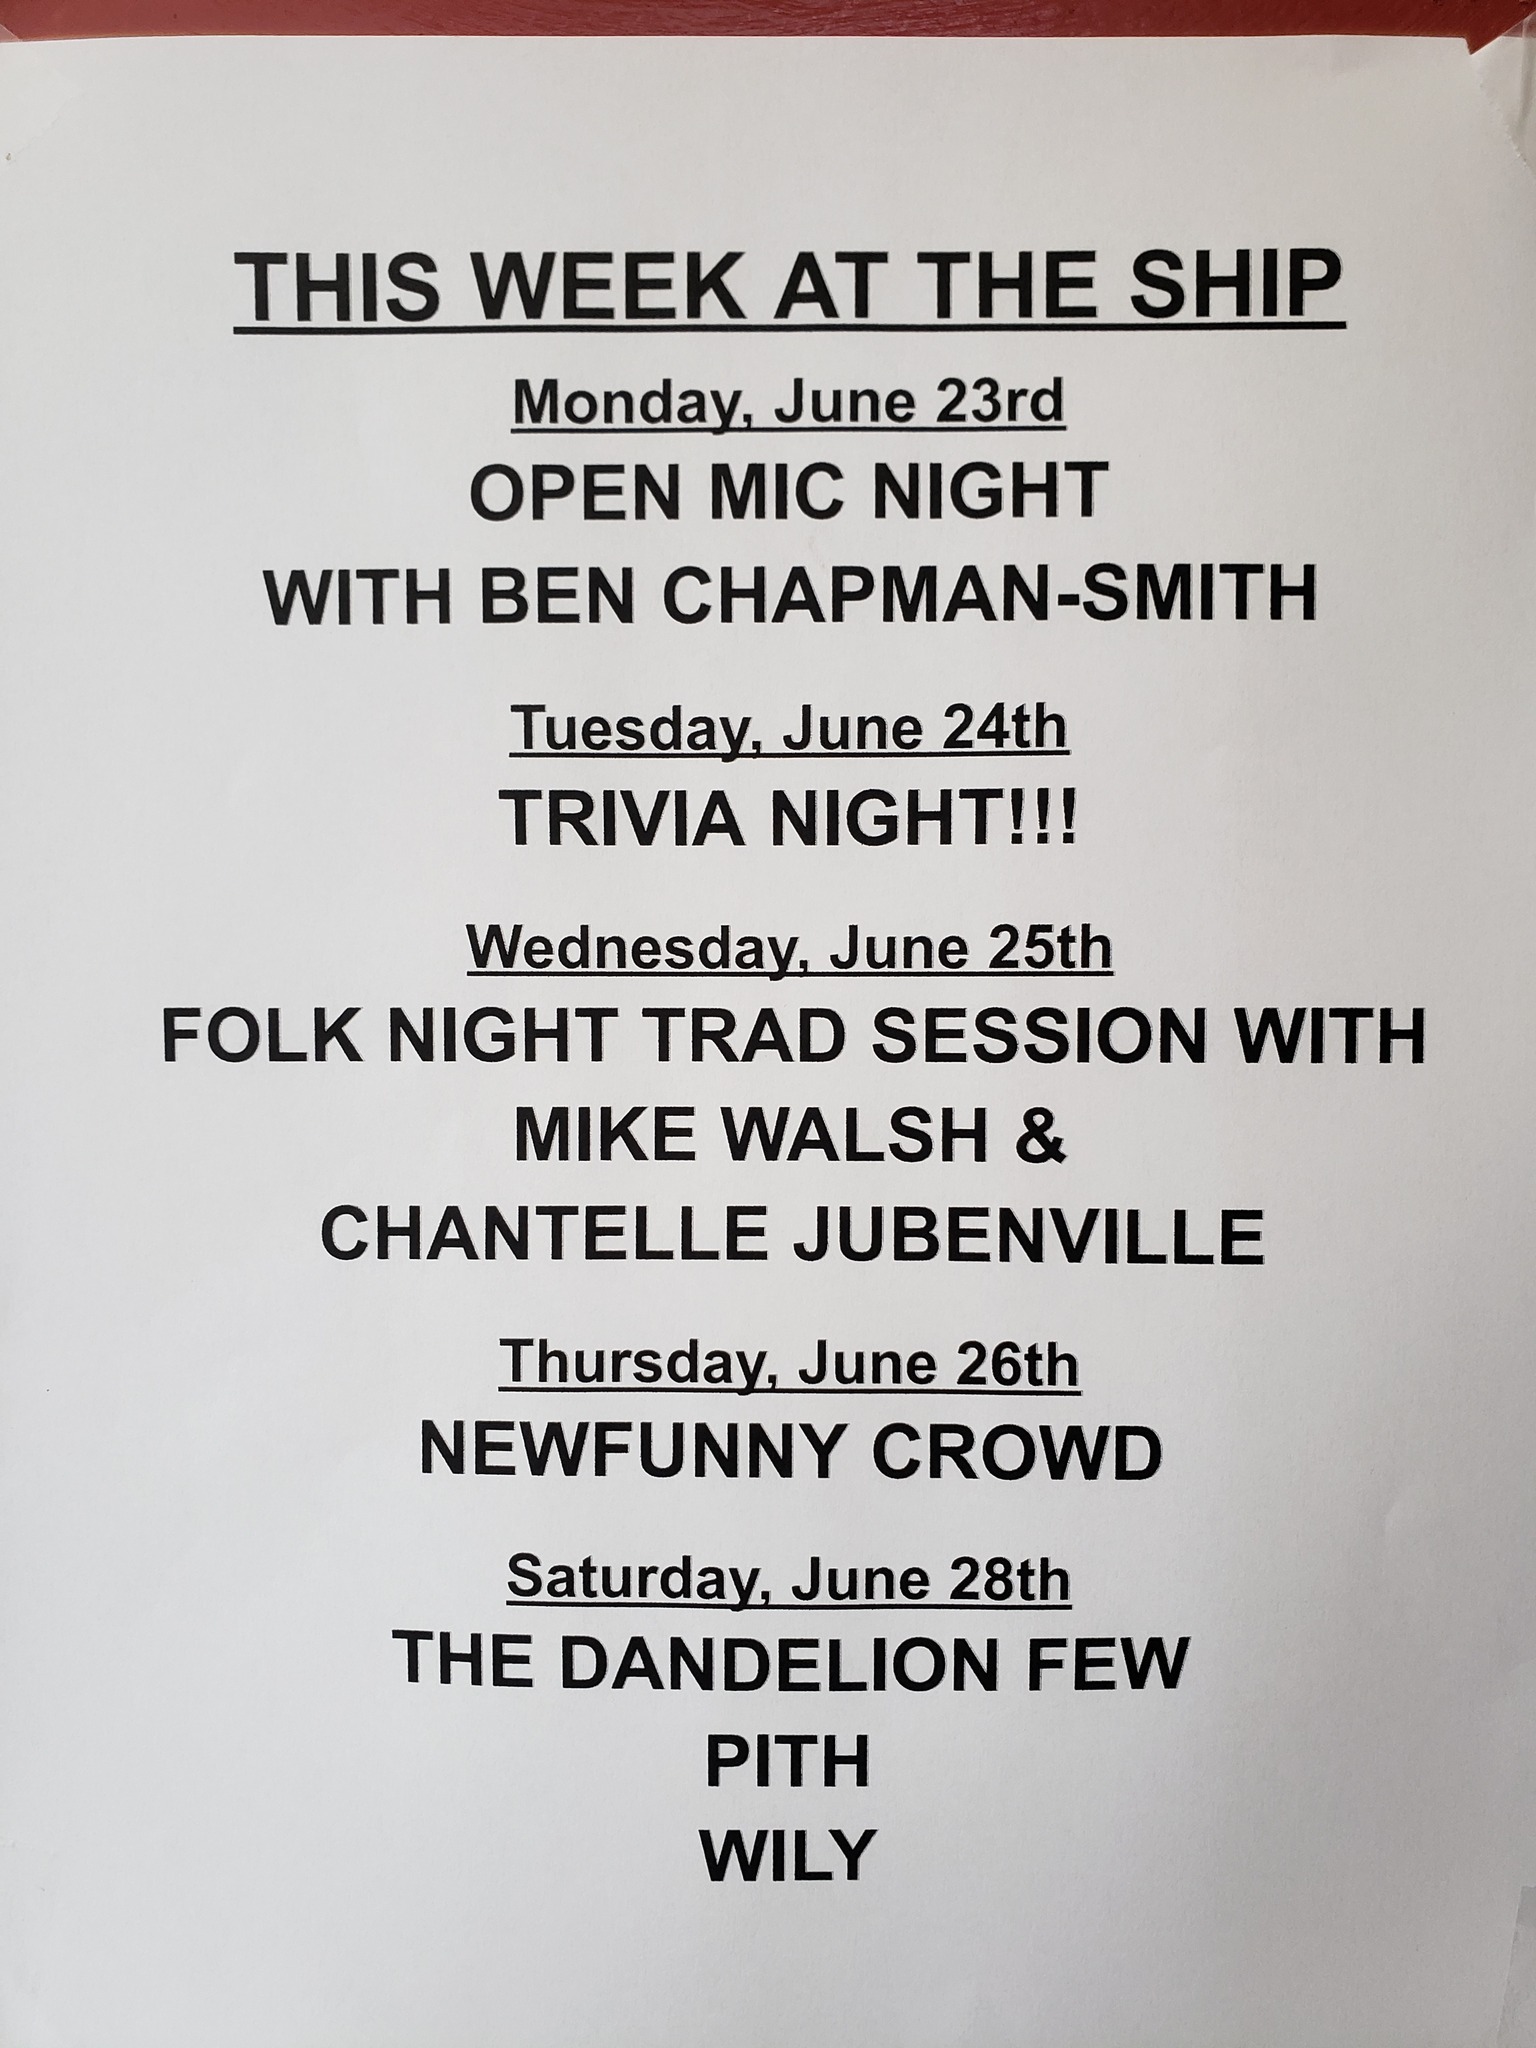 THIS WEEK AT THE SHIP
Monday, June 23rd
OPEN MIC NIGHT
WITH BEN CHAPMAN-SMITH
Tuesday, June 24th
TRIVIA NIGHT!!!
Wednesday, June 25th
FOLK NIGHT TRAD SESSION WITH
MIKE WALSH &
CHANTELLE JUBENVILLE
Thursday, June 26th
NEWFUNNY CROWD
Saturday, June 28th
THE DANDELION FEW
PITH
WILY